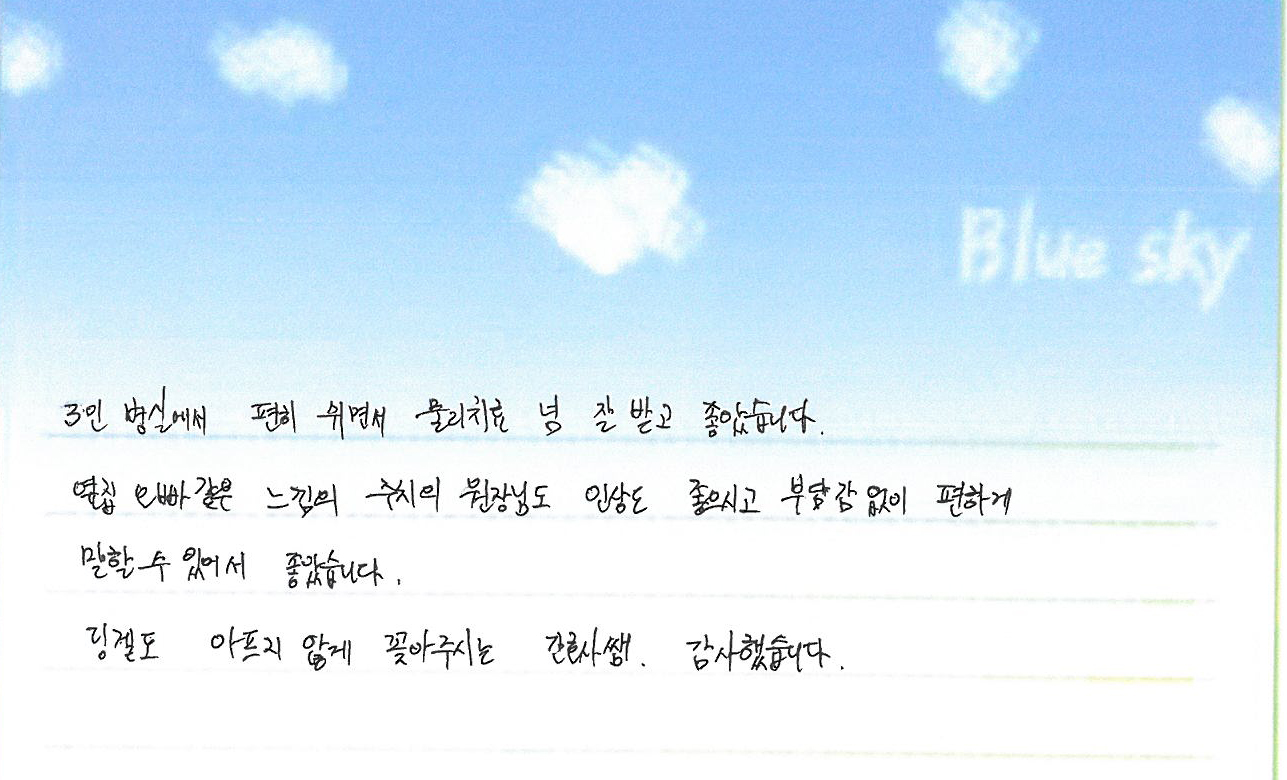 Blue sky
3인 병실에서 편히 쉬면서 물리치료 넘 잘 받고 좋았습니다.
옆집 오빠같은 느낌의 주치의 원장님도 인상도 좋으시고 부담감 없이 편하게
말할 수 있어서 좋았습니다.
링겔도 아프지 않게 꽂아주시는 간호사쌤. 감사했습니다.